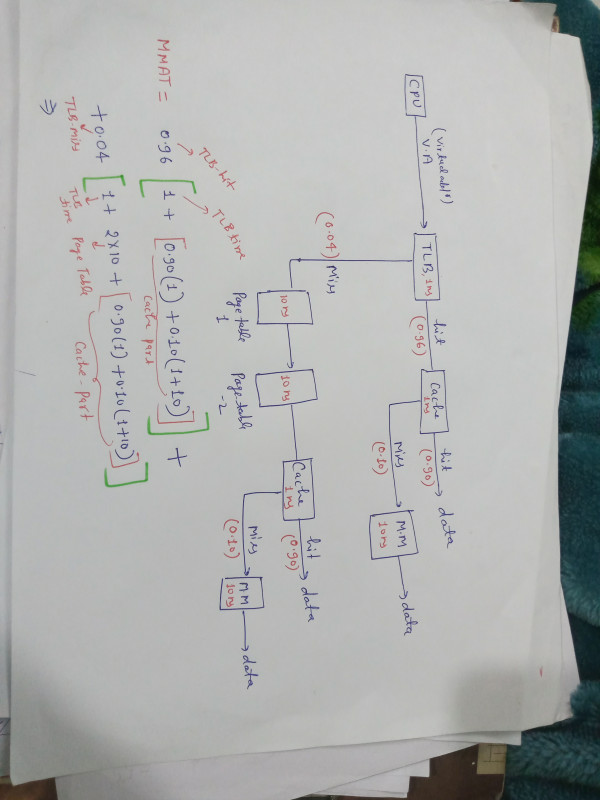 CPU
(virtual add^s)
V.A
TLB, 1ns
hit
(0.96)
Cache
1ns
hit
(0.90)
data
Miss
(0.10)
M.M
10ns
data
Miss
(0.04)
10ns
Page table
1
10ns
Page table
-2
Cache
1ns
hit
(0.90)
data
Miss
(0.10)
M.M
10ns
data
TLB-hit
TLB time
MMAT = 0.96 [ 1 + [ 0.90(1) + 0.10(1+10) ] ] +
Cache part
+0.04 [ 1 + 2×10 + [ 0.90(1) + 0.10(1+10) ] ]
TLB-miss
TLB time
Page Table
Cache-Part
⇒